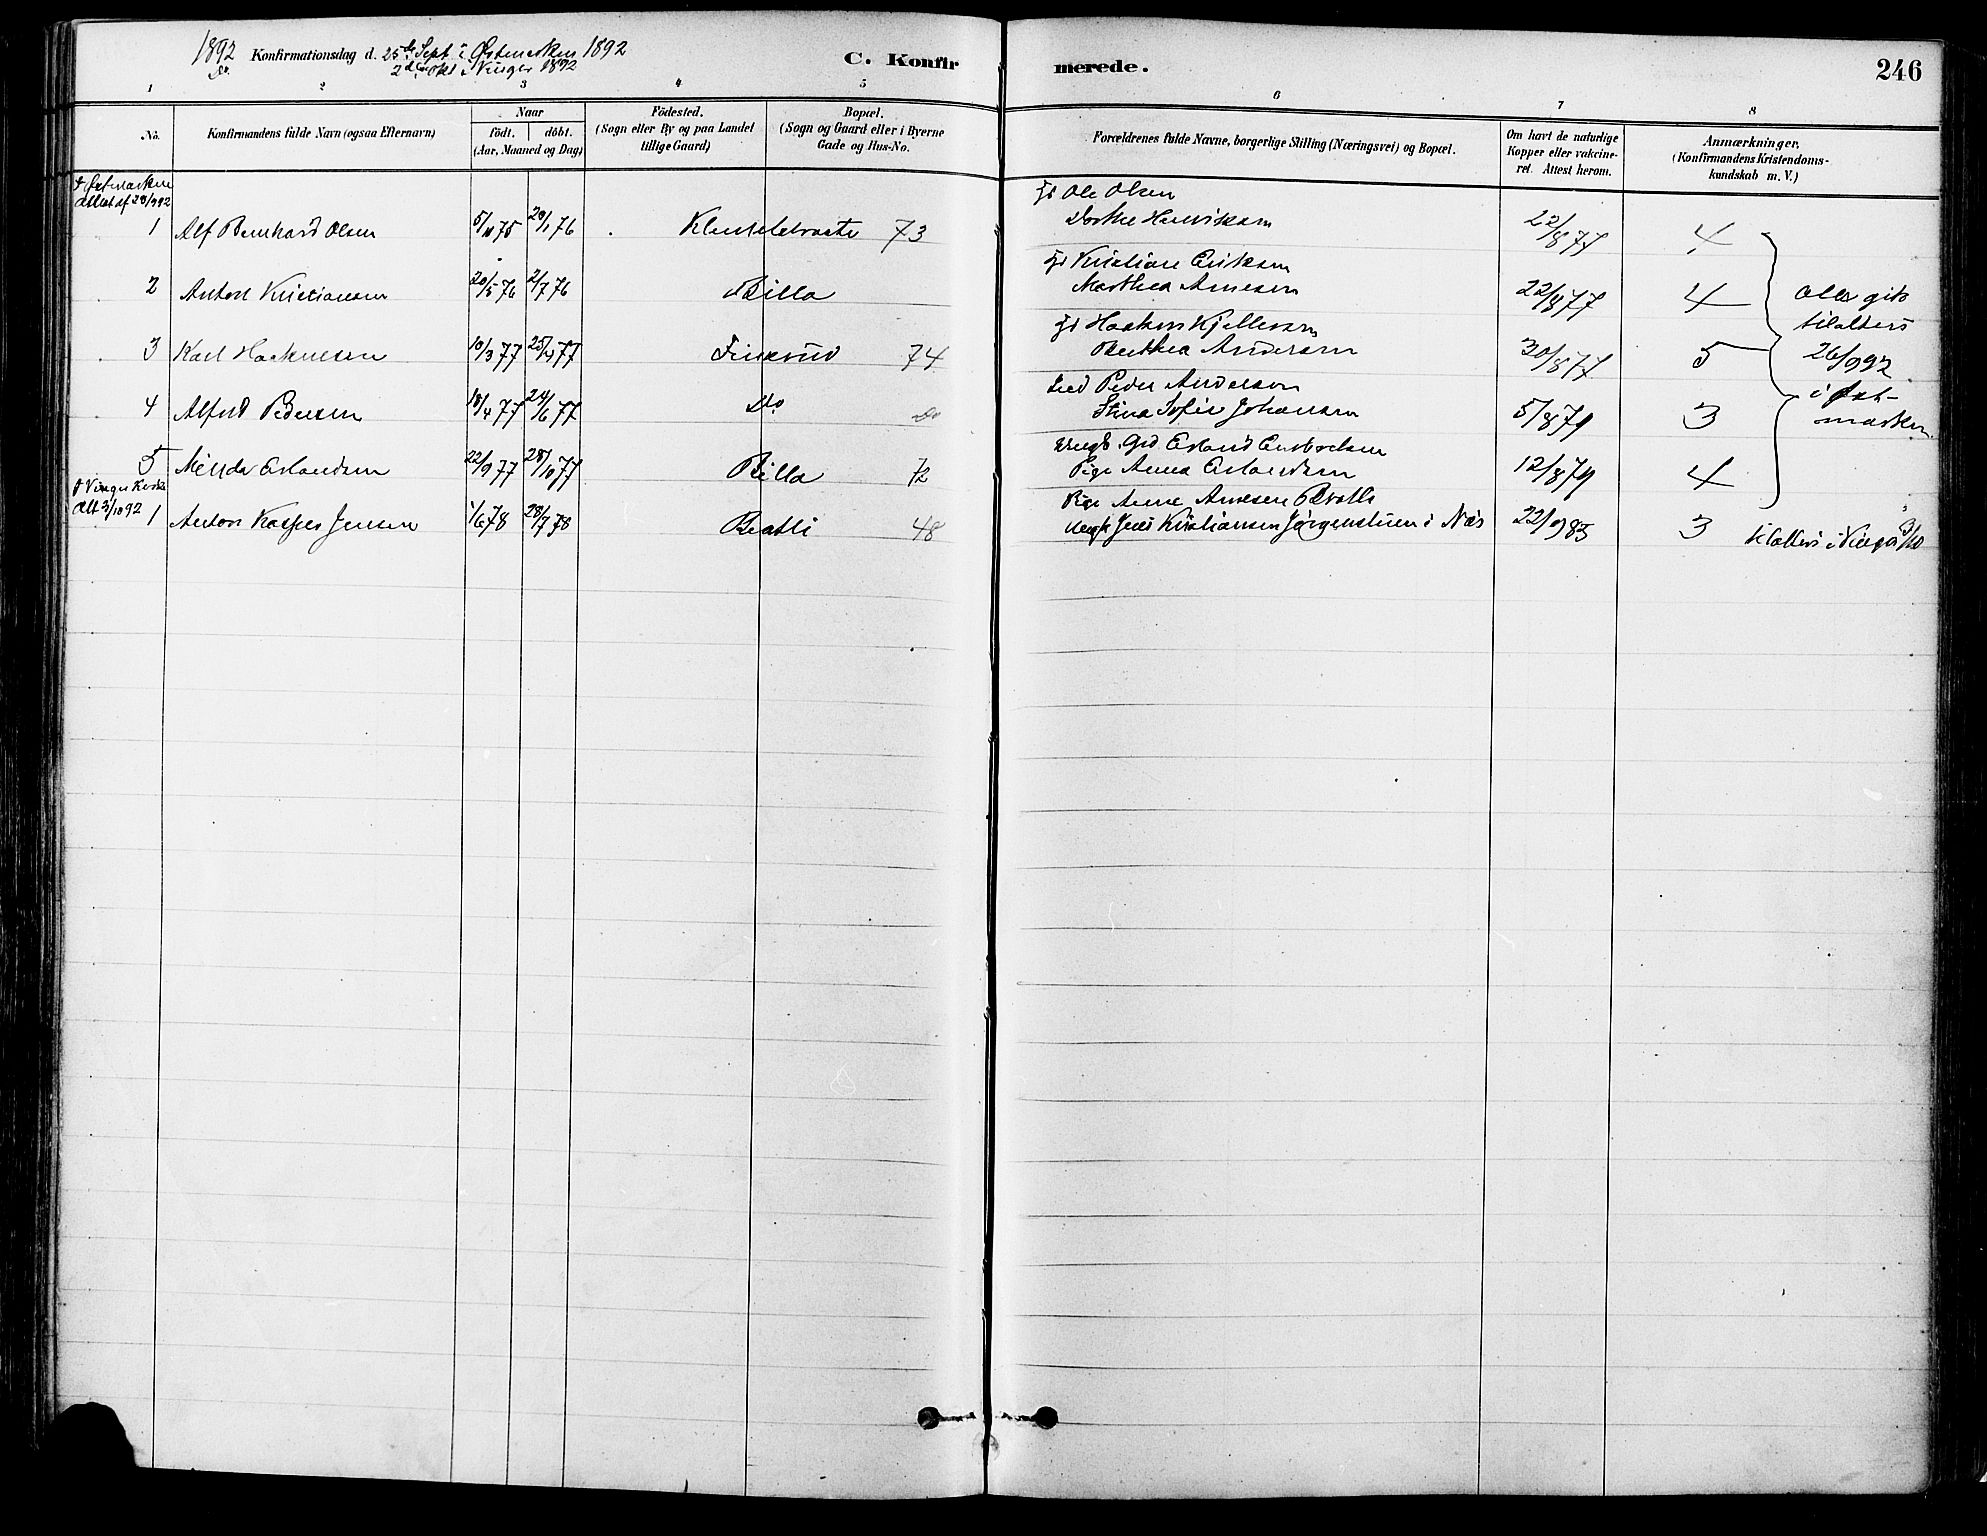 1892 Konfirmationsdag d. 25de Sept i Østmarken 1892
Do. 2den Okt i Vinger 1892
C. Konfirmerede.
246
1 2 3 4 5 6 7 8
No.
Konfirmandens fulde Navn (ogsaa Efternavn)
Naar
födt. döbt.
(Aar, Maaned og Dag)
Födested.
(Sogn eller By og paa Landet
tillige Gaard)
Bopæl.
(Sogn og Gaard eller i Byerne
Gade og Hus-No.
Forældrenes fulde Navne, borgerlige Stilling (Næringsvei) og Bopæl.
Om havt de naturlige
Kopper eller vakcine-
ret. Attest herom.
Anmærkninger,
(Konfirmandens Kristendoms-
kundskab m. V.)
Østmarken
Ole Olsen
1 Alf Bernhard Olsen 5/10 75 20/1 76 73 Dorthe Henriksen 22/8 77 4
Kristian Eriksen
2 Anton Kristiansen 20/5 76 2/7 76 Billa Marthea Arnesen 22/8 77 4 Alle gik
tilalters
Haaken Kjellesen
3 Karl Haakensen 10/3 77 25/4 77 74 Berthea Andersen 30/8 77 5 26/9 92
Peder Andersen
4 Alfred Pedersen 18/4 77 24/6 77 Do Do Stina Sofie Johansen 5/8 79 3 i Øst-
marken
Erland
5 Minda Erlandsen 22/9 77 28/10 77 Billa 72 Pige Anna Erlandsen 12/8 79 4
I Vinger Kirke
Alt 3/10 92
Pige Anne Arnesen Bratli
1 Anton Kasper Jensen 1/6 78 28/7 78 Bratli 48 Ungk Jens Kristiansen Jörgenstuen i Næs 22/9 83 3 tilalters i Vinger 3/10